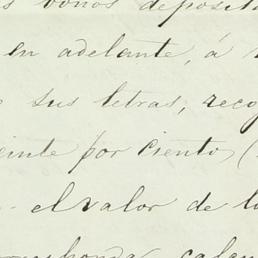 s bonos deposita
en adelante, á
sus letras, reco
einte por ciento (
el valor de l